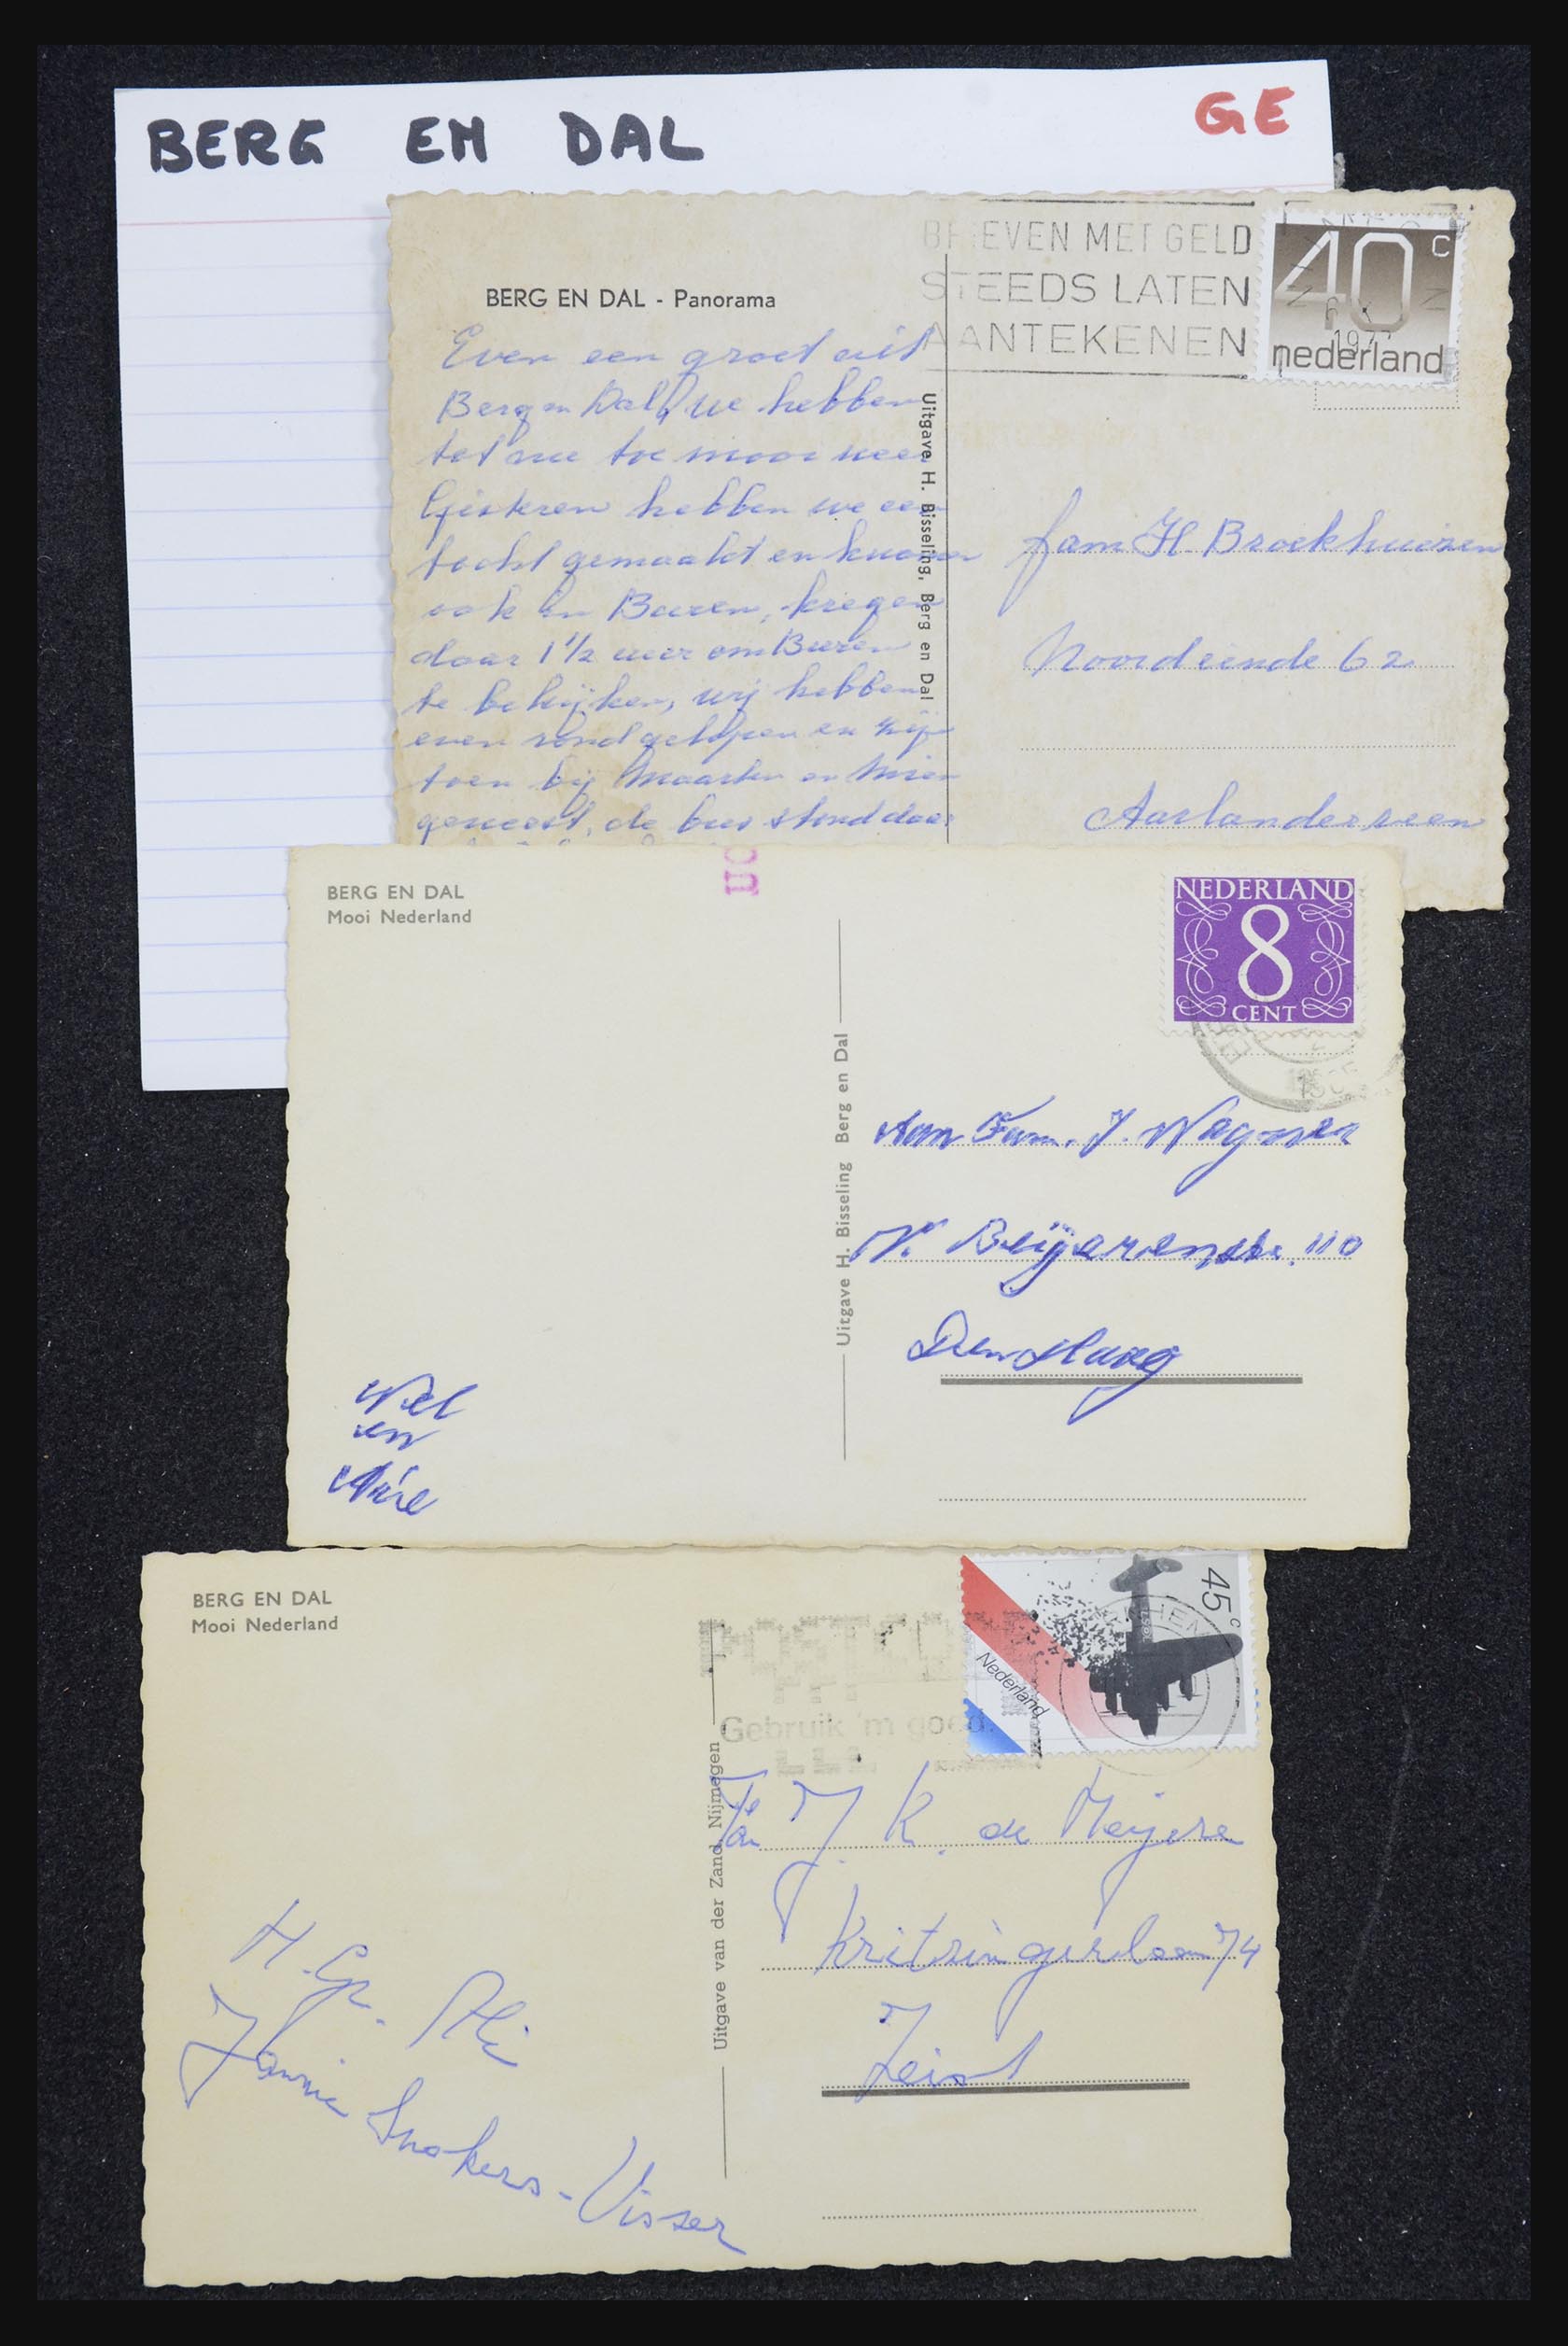 BERG EN DAL
GE
BERG EN DAL - Panorama
BRIEVEN MET GELD
STEEDS LATEN
AANTEKENEN
40 c
1977
nederland
Even een groet uit
Berg en Dal, we hebben
tot nu toe mooi weer
Gisteren hebben we een
tocht gemaakt en kwamen
ook in Buren, kregen
daar 1 1/2 uur om Buren
te bekijken, wij hebben
even rondgelopen en zijn
toen bij Maarten en Mien
geweest, de bus stond daar
Uitgave H. Bisseling, Berg en Dal
fam H. Broekhuizen
Noordeinde 62
Aarlanderveen
BERG EN DAL
Mooi Nederland
NEDERLAND
8
CENT
Uitgave H. Bisseling Berg en Dal
Aan Fam. J. Wagner
N. Beijerenstr. 110
Den Haag
Wel
en
BERG EN DAL
Mooi Nederland
POSTCODE
Gebruik 'm goed.
45 c
Nederland
Uitgave van der Zand, Nijmegen
Fa J. K. de Meijere
74
Zeist
H. Gr. Ali
Jannie Snokers-Visser